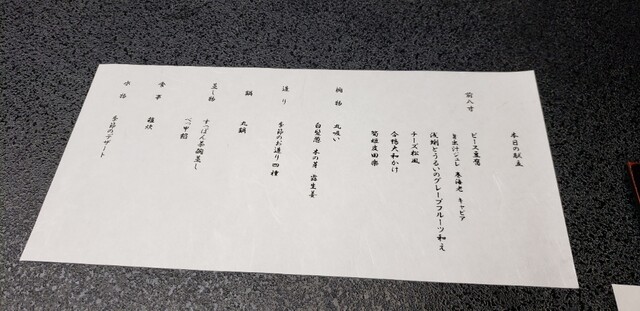 本日の献立
前八寸
ピース豆腐
旨出汁ジュレ 車海老 キャビア
浅蜊とうるいのグレープフルーツ和え
チーズ松風
合鴨大和かけ
筍姫皮田楽
椀物 丸吸い
白髪葱 木の芽 露生姜
造り 季節のお造り四種
鍋 丸鍋
蒸し物 すっぽん茶碗蒸し
べっ甲餡
食事 雑炊
水物 季節のデザート